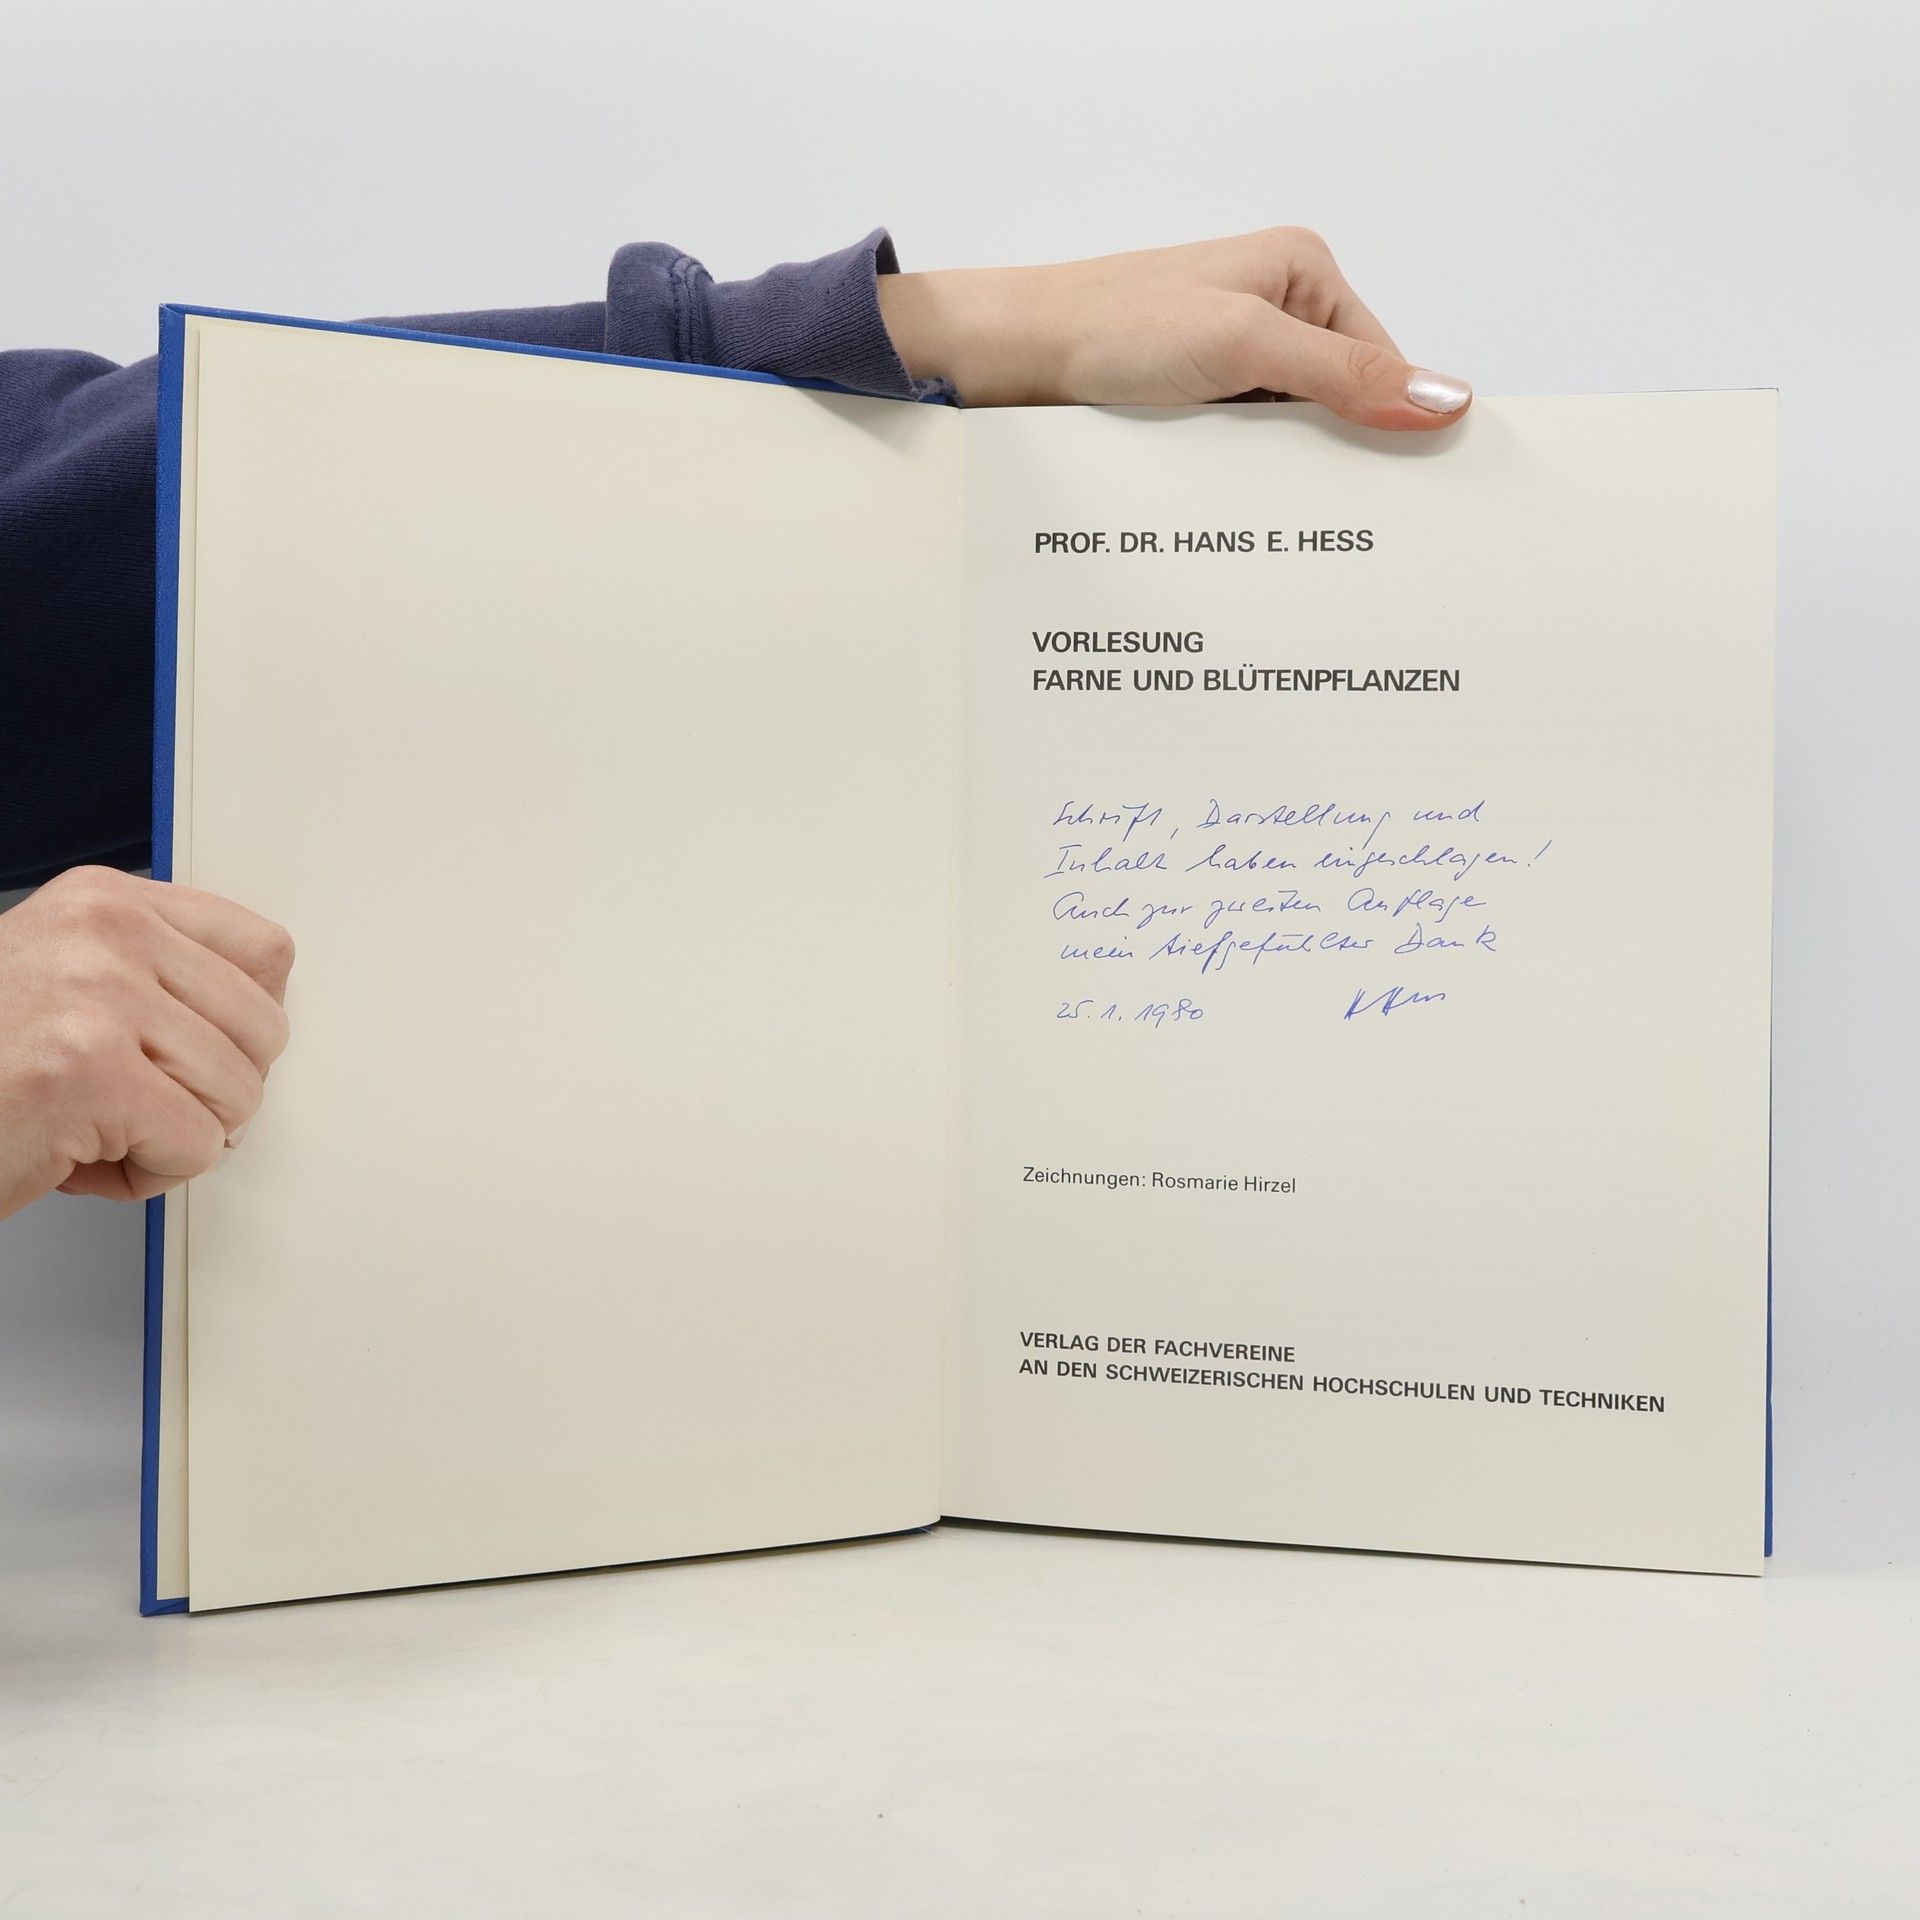 PROF. DR. HANS E. HESS
VORLESUNG
FARNE UND BLÜTENPFLANZEN
Schrift, Darstellung und
Inhalt haben eingeschlagen!
Auch zur zweiten Auflage
mein tiefgefühlter Dank
25.1.1980
Zeichnungen: Rosmarie Hirzel
VERLAG DER FACHVEREINE
AN DEN SCHWEIZERISCHEN HOCHSCHULEN UND TECHNIKEN